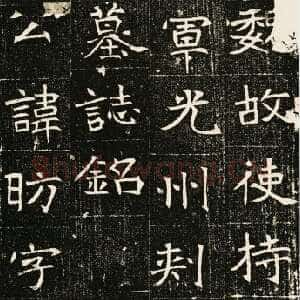 魏故使持
軍光州刾
墓誌銘
公諱昉字